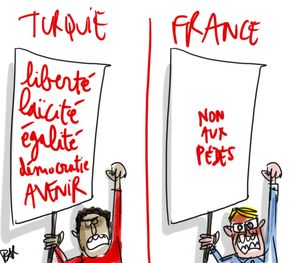 TURQUIE
liberté
laïcité
égalité
démocratie
AVENIR
FRANCE
NON
AUX
PÉDÉS
BAR